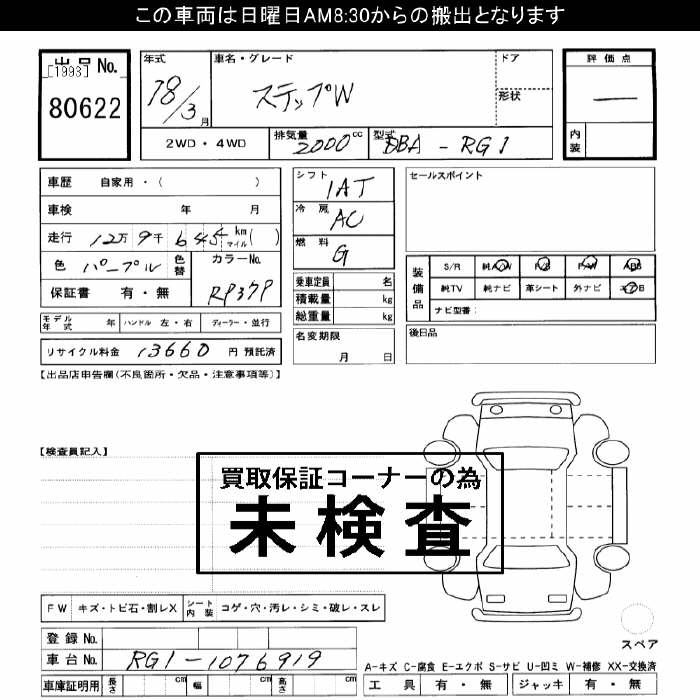 この車両は日曜日AM8:30からの搬出となります
出品 No.
[1993]
80622
年式
18/3月
車名・グレード
ステップW
ドア
形状
評価点
―
内装
2WD・4WD
排気量 2000 cc
型式 DBA-RG1
車歴 自家用・( )
車検 年 月
走行 12万9千645 km マイル( )
色 パープル 色替
カラーNo. RP37P
保証書 有・無
シフト 1AT
冷房 AC
燃料 G
乗車定員 名
積載量 kg
総重量 kg
名変期限
月 日
セールスポイント
装備品
S/R 純A/W P/S P/W ABS
純TV 純ナビ 革シート 外ナビ エアB
ナビ型番:
後日品
モデル年式 年 ハンドル 左・右 ディーラー・並行
リサイクル料金 13660 円 預託済
【出品店申告欄(不良箇所・欠品・注意事項等)】
【検査員記入】
買取保証コーナーの為
未検査
FW キズ・トビ石・割レX シート内装 コゲ・穴・汚レ・シミ・破レ・スレ
登録 No.
車台 No. RG1-1076919
車庫証明用 長さ cm 幅 cm 高さ cm
スペア
A-キズ C-腐食 E-エクボ S-サビ U-凹ミ W-補修 XX-交換済
工具 有・無 ジャッキ 有・無